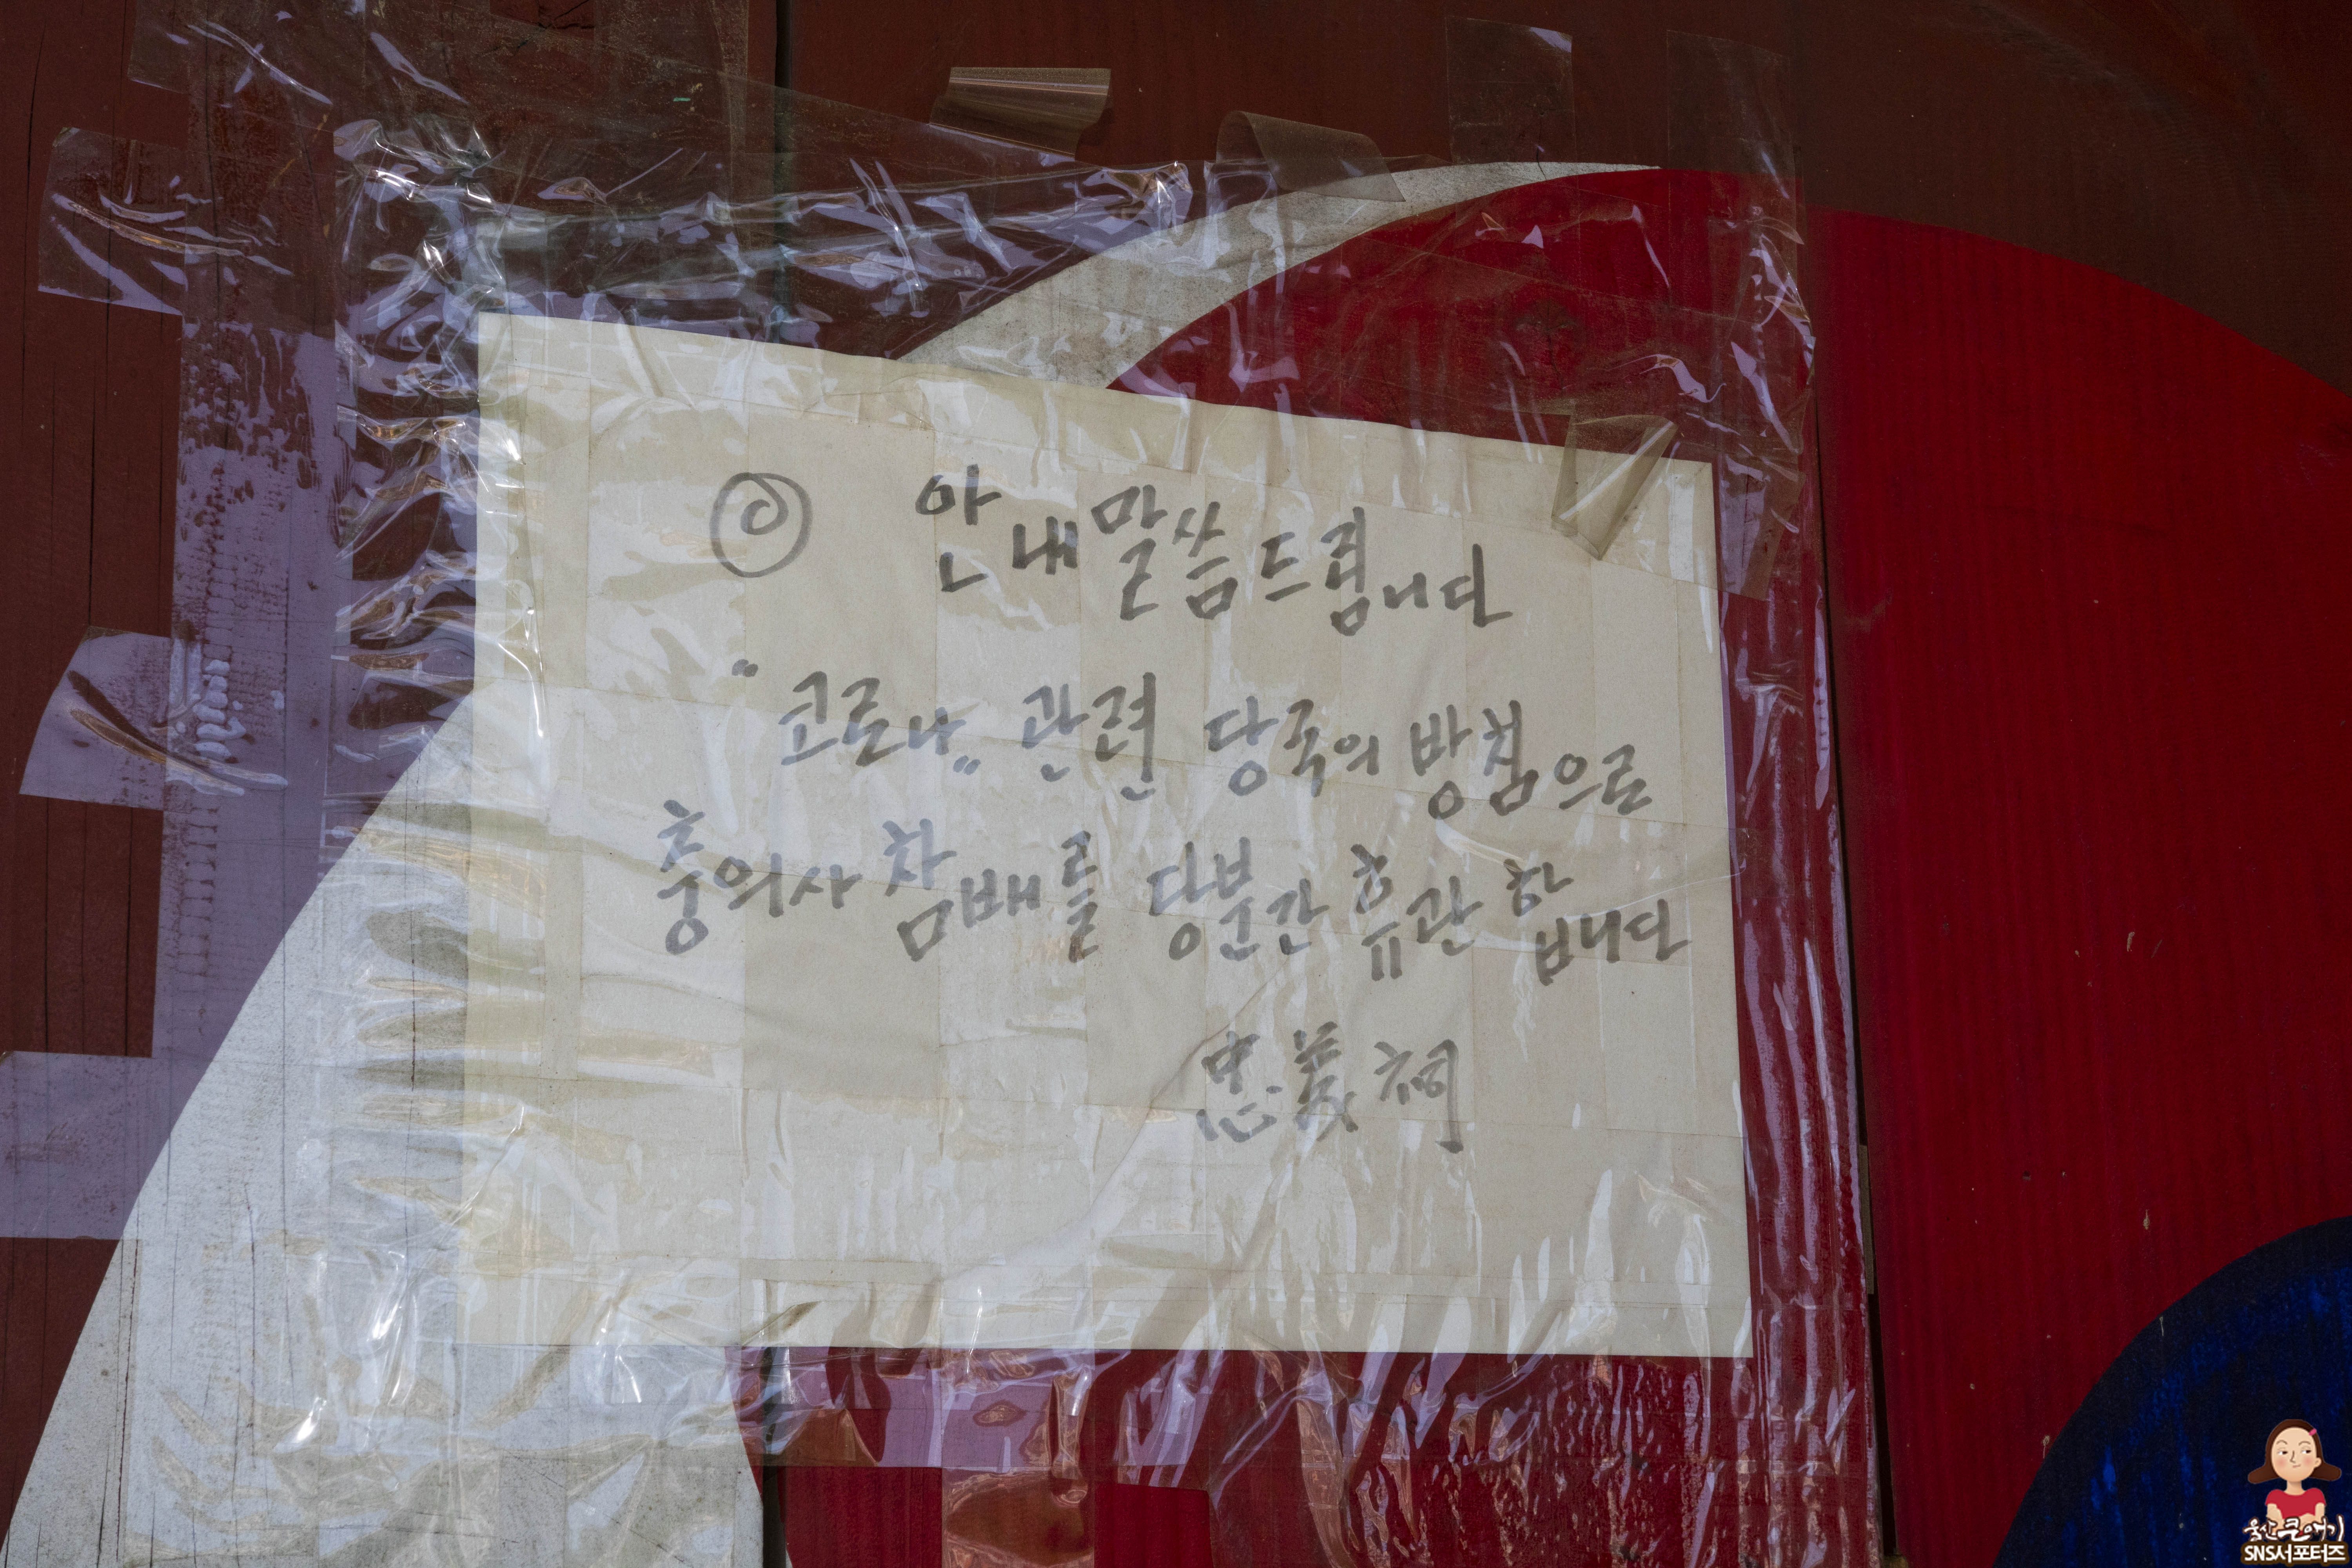 ◎ 안내말씀드립니다
"코로나" 관련 당국의 방침으로
충의사 참배를 당분간 휴관 합니다
忠義祠
울산큰애기
SNS서포터즈